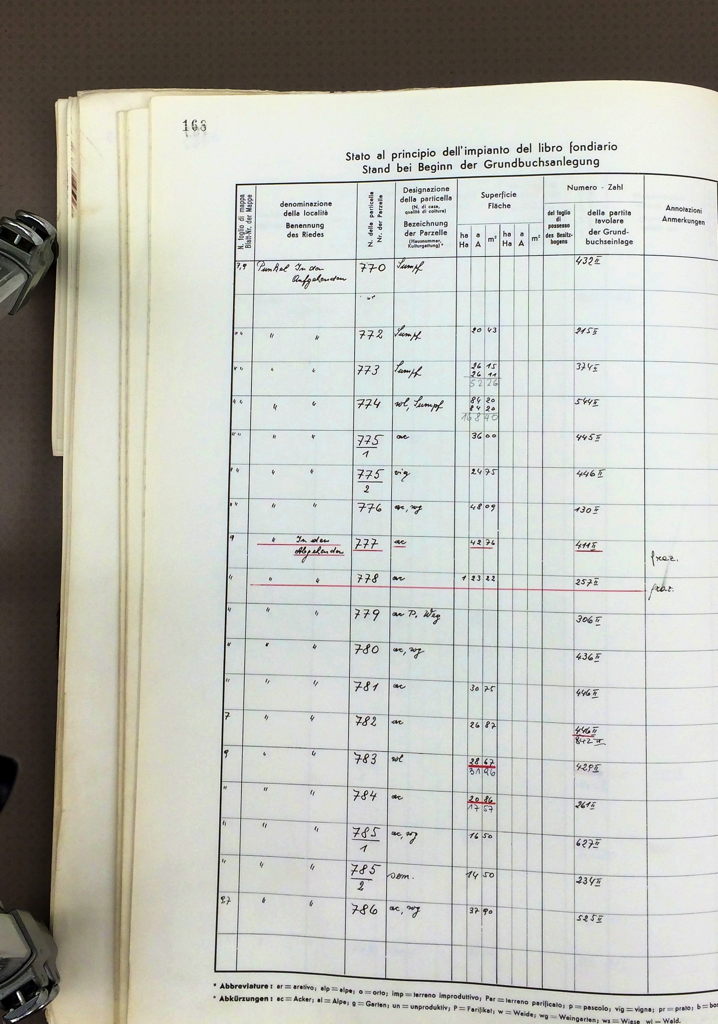 163
Stato al principio dell'impianto del libro fondiario
Stand bei Beginn der Grundbuchsanlegung
N. foglio di mappa
Blatt-Nr. der Mappe
denominazione
della località
Benennung
des Riedes
N. della particella
Nr. der Parzelle
Designazione
della particella
(N. di casa,
qualità di coltura)
Bezeichnung
der Parzelle
(Hausnummer,
Kulturgattung)*
Superficie
Fläche
ha a m² ha a m²
Ha A Ha A
Numero - Zahl
del foglio
di
possesso
des Besitz-
bogens
della partita
tavolare
der Grund-
buchseinlage
Annotazioni
Anmerkungen
7,9 In den 770 Sumpf 432 II
Aufgehenden
" "
" " " " 772 Sumpf 20 43 215 II
" " " " 773 Sumpf 26 15 374 II
26 11
52 26
" " " " 774 Sumpf 84 20 544 II
84 20
1 68 40
" " " " 775/1 ac 36 00 445 II
" " " " 775/2 24 75 446 II
" " " " 776 ac, wg 48 09 130 II
9 " In den 777 ac 42 76 411 II
Abgehenden fraz.
" " " 778 ac 1 23 22 257 II fraz.
" " " 779 ac P. Weg 306 II
" " " 780 ac, wg 436 II
" " " 781 ac 30 75 446 II
7 " " 782 ac 26 87 446 II
842 II
9 " " 783 28 67 429 II
31 96
" " " 784 ac 20 86 261 II
17 57
" " " 785/1 ac, wg 16 50 627 II
" " " 785/2 14 50 234 II
" " 786 ac, wg 37 90 525 II
* Abbreviature: ar = arativo; alp = alpe; o = orto; imp = terreno improduttivo; Par = terreno parificato; p = pascolo; vig = vigna; pr = prato; b = bo
* Abkürzungen: ac = Acker; al = Alpe; g = Garten; un = unproduktiv; P = Parifikat; w = Weide; wg = Weingarten; ws = Wiese; wl = Wald.